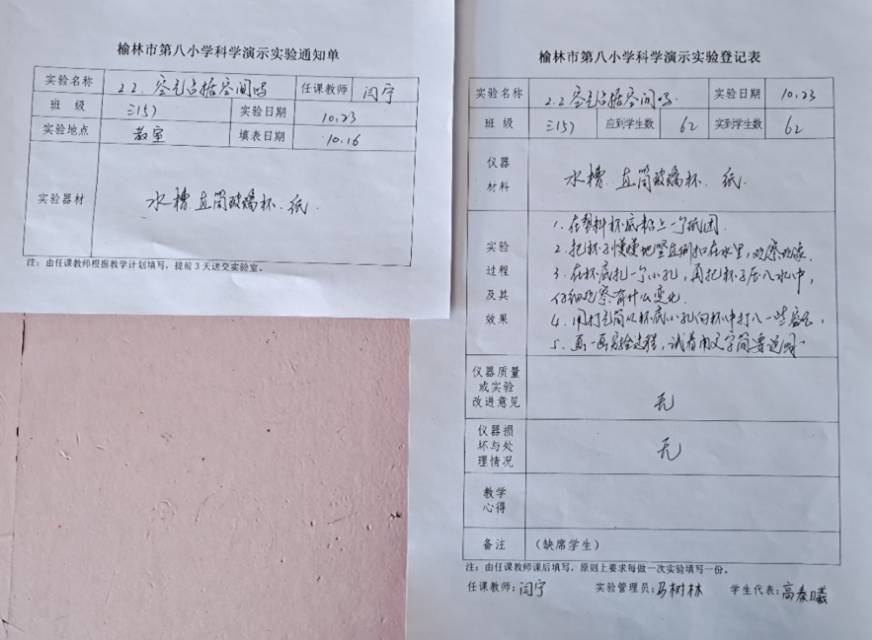 榆林市第八小学科学演示实验通知单
实验名称 2.2.空气占据空间吗 任课教师 闫宁
班 级 三(5) 实验日期 10.23
实验地点 教室 填表日期 10.16
实验器材 水槽.直筒玻璃杯.纸.
注:由任课教师根据教学计划填写,提前3天送交实验室。
榆林市第八小学科学演示实验登记表
实验名称 2.2.空气占据空间吗. 实验日期 10.23
班 级 三(5) 应到学生数 62 实到学生数 62
仪器材料 水槽.直筒玻璃杯.纸.
实验过程及其效果
1.在塑料杯底粘上一个纸团.
2.把杯子慢慢地竖直倒扣在水里,观察现象.
3.在杯底扎一个小孔,再把杯子压入水中,
仔细观察有什么变化.
4.用打气筒从杯底小孔向杯中打入一些空气.
5.画一画实验过程,试着用文字简要说明.
仪器质量或实验改进意见 无
仪器损坏与处理情况 无
教学心得
备注 (缺席学生)
注:由任课教师课后填写,原则上要求每做一次实验填写一份。
任课教师:闫宁 实验管理员:马树林 学生代表:高秦曦